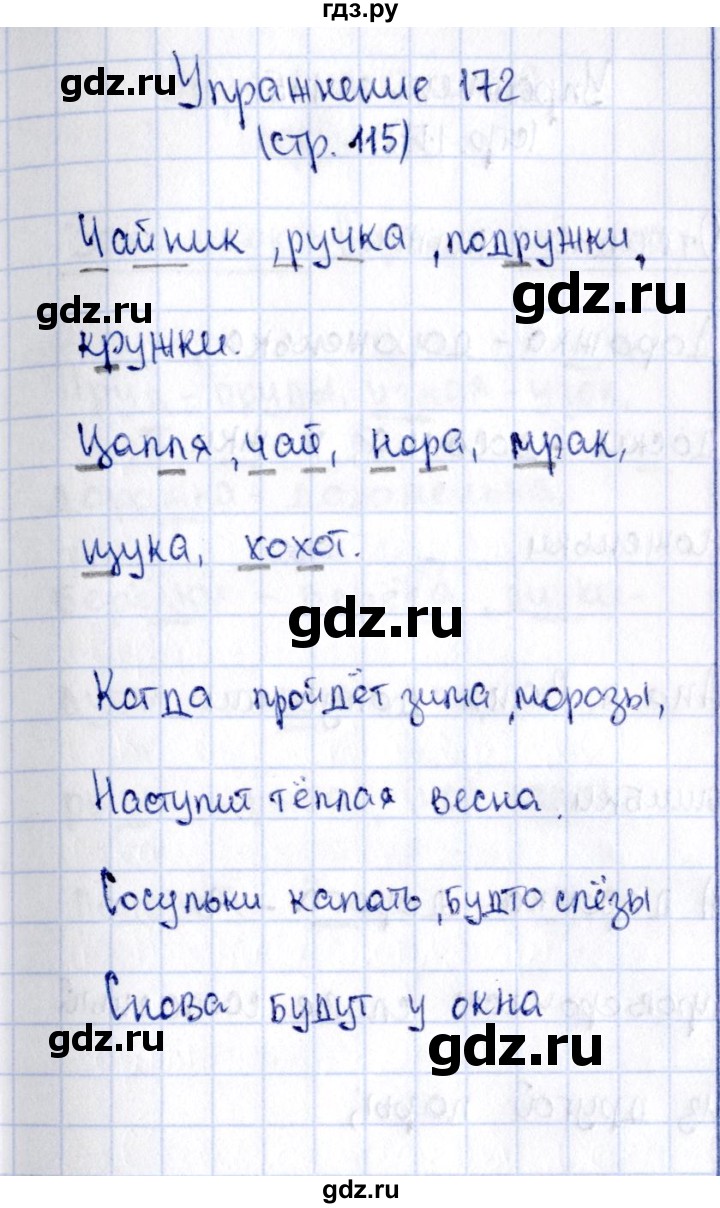 гдз.ру
gdz.ru
Упражнение 172
(стр. 115)
Чайник, ручка, подружки,
gdz.ru
gdz.ru
кружки.
Цапля, чай, нора, мрак,
щука, хохот.
gdz.ru
Когда пройдёт зима, морозы,
Наступит тёплая весна.
Сосульки капать, будто слёзы
Снова будут у окна
gdz.ru
gdz.ru
gdz.ru